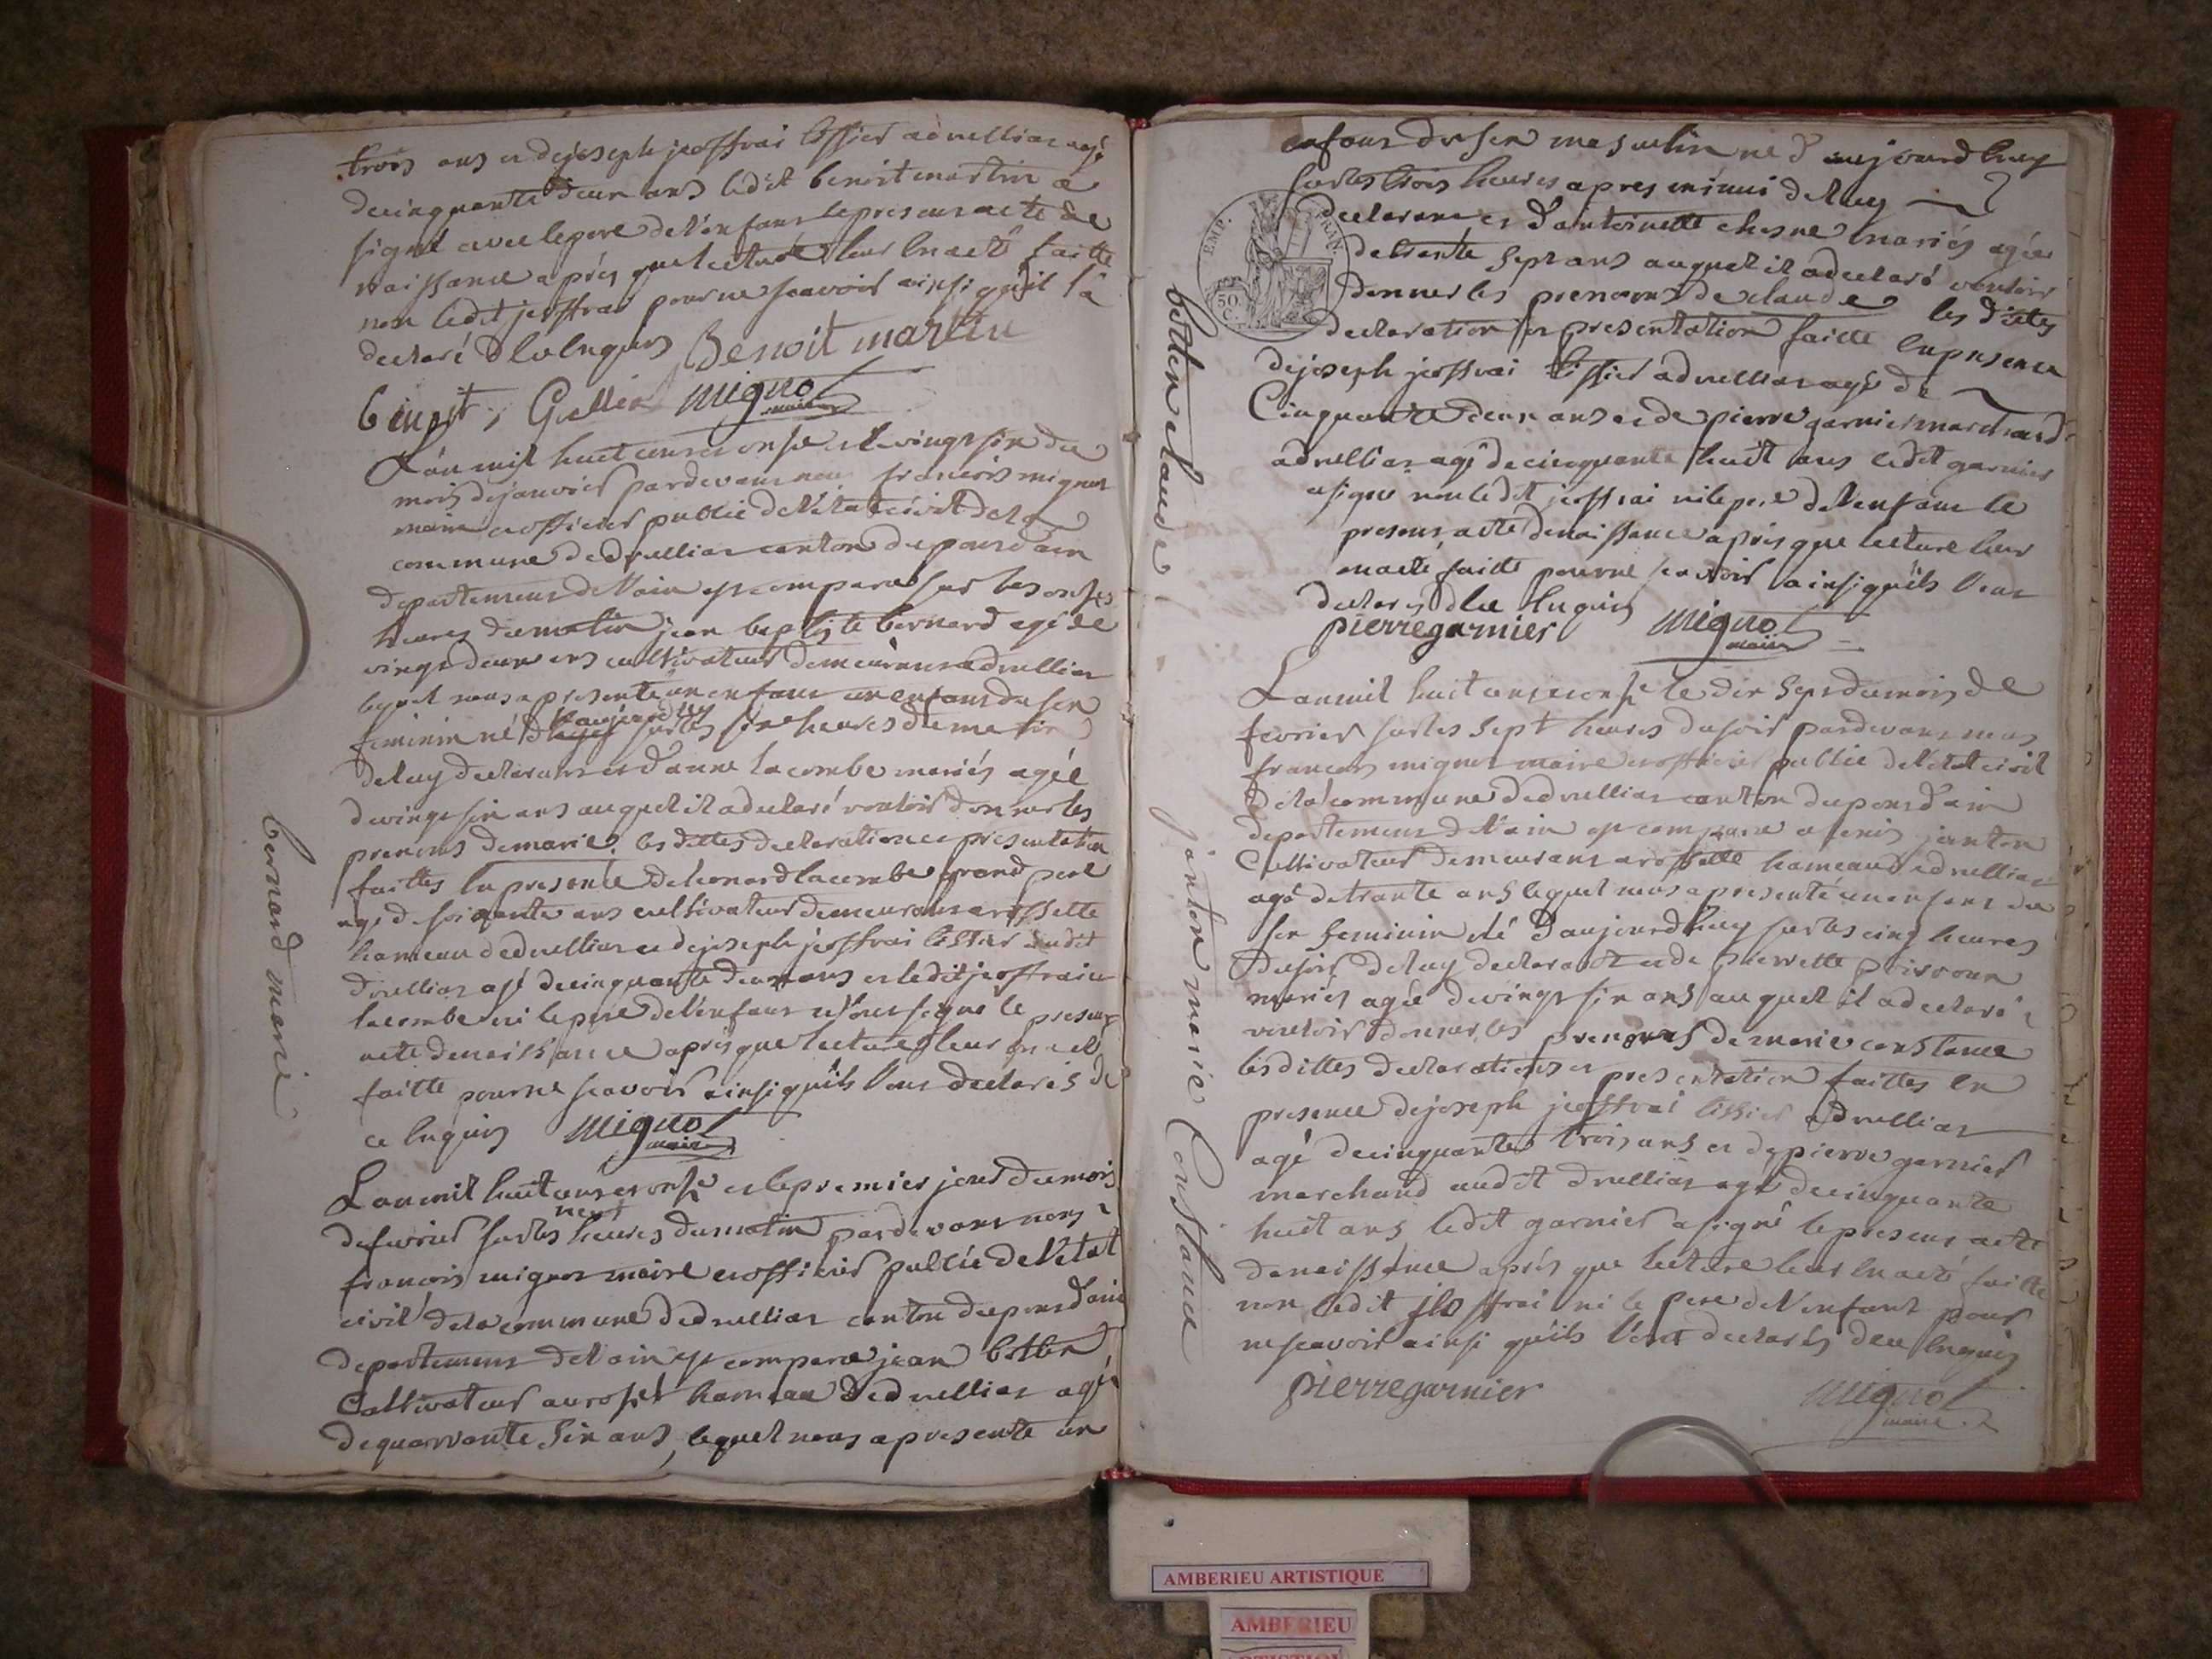 trois ans et de joseph jeoffrai tissier a druillias agé
de cinquante deux ans ledit benoit martin a
signé avec le pere de l'enfant le present acte de
naissance après que lecture leur en a eté faitte
non ledit jeoffrai pour ne scavoir ainsi qu'il l'a
declaré de ce enquis Benoit martin
benoit Gallien mignot
maire
L'an mil huit cent et onse et le vingt six du
mois de janvier pardevant nous francois mignot
maire et officier public de l'état civil de la
commune de druillias canton du pont d'ain
departement de l'ain est comparu sur les onses
heures du matin jean baptiste bernard agé de
vingt deux ans cultivateur demeurant a druillias
lequel nous a presenté un enfant un enfant du sex
feminin né d'aujourdhuy sur les six heures du matin
de luy declarant et d'anne lacombe mariés agée
de vingt six ans auquel il a declaré vouloir donner les
prenoms de marie, les dittes declaration et presentation
faittes en presence de léonard lacombe grand pere
agé de soixante ans cultivateur demeurant a rossette
hameau de druillias et de joseph jeoffrai tissier audit
druillias agé de cinquante deux ans et ledit jeoffrai et
lacombe ni le pere de l'enfant n'ont signé le present
acte de naissance après que lecture leur en a eté
faitte pour ne scavoir ainsi qu'ils l'ont declarés de
ce enquis mignot
maire
bernard marie
L'an mil huit cent et onse et le premier jour du mois
de fevrier sur les neuf heures du matin pardevant nous
francois mignot maire et officier public de l'état
civil de la commune de druillias canton du pont d'ain
departement de l'ain est comparu jean botten
Cultivateur au roset hameau de druillias agé
de quarrante six ans, lequel nous a presenté un
enfant du sex masculin né d'aujourdhuy
sur les trois heures apres minui de luy
declarant et d'antoinette chesne mariés agée
de trente sept ans auquel il a declaré vouloir
donner les prenoms de claude les dittes
declaration et presentation faitte en presence
de joseph jeoffrai tissier a druillias agé de
Cinquante deux ans et de pierre garnier marchand
a druillias agé de cinquante huit ans ledit garnier
a signé non ledit jeoffrai ni le pere de l'enfant le
present acte de naissance après que lecture leur
en a eté faitte pour ne scavoir ainsi qu'ils l'ont
declarés de ce enquis
pierre garnier mignot
maire
EMP. FRAN.
50
C.
botten claude
L'an mil huit cent et onse le dix sept du mois de
fevrier sur les sept heures du soir pardevant nous
francois mignot maire et officier public de l'état civil
de la commune de druillias canton du pont d'ain
departement de l'ain est comparu janton
Cultivateur demeurant a rossette hameau de druillias
agé de trante ans lequel nous a presenté un enfant du
sex feminin né d'aujourdhuy sur les cinq heures
du soir de luy declarant et de pierrette
mariés agée de vingt six ans auquel il a declaré
vouloir donner les prenoms de marie constance
les dittes declarations et presentation faittes en
presence de joseph jeoffrai tissier a druillias
agé de cinquante trois ans et de pierre garnier
marchand audit druillias agé de cinquante
huit ans ledit garnier a signé le present acte
de naissance après que lecture leur en a eté faitte
non ledit jeoffrai ni le pere de l'enfant pour
ne scavoir ainsi qu'ils l'ont declarés de ce enquis
pierre garnier mignot
maire
janton marie Constance
AMBERIEU ARTISTIQUE
AMBERIEU
ARTISTIQUE